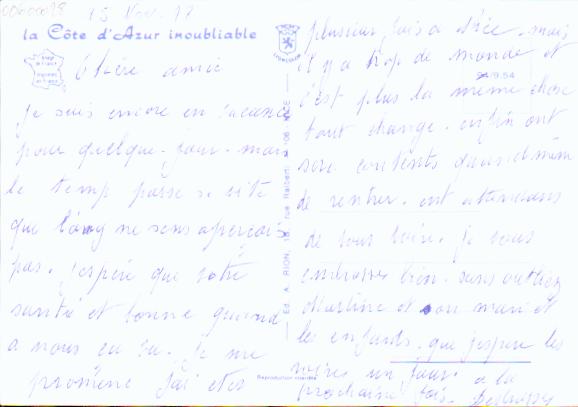 00600098
15 Nov. 77
la Côte d'Azur inoubliable
Chère amie
je suis encore en vacance
pour quelque. jour. mais
le temp passe si vite
que l'on ne sens aperçois
pas. j'espère que votre
santé et bonne quand
a nous ça va. je me
promène j'ai etes
LYONCOLOR
Ed. A. RION, 18, rue Raiberti 06 NICE
Reproduction interdite
plusieur fois a Nice. mais
il y a trop de monde et
9.54
c'est plus la même chose
tout change. enfin ont
sera contents quand même
de rentrer. ont attendans
de vous voire. je vous
embrasses bien. sans oublier
Martine et son mari et
les enfants. que j'espère les
voires un jour. a la
prochaine fois.